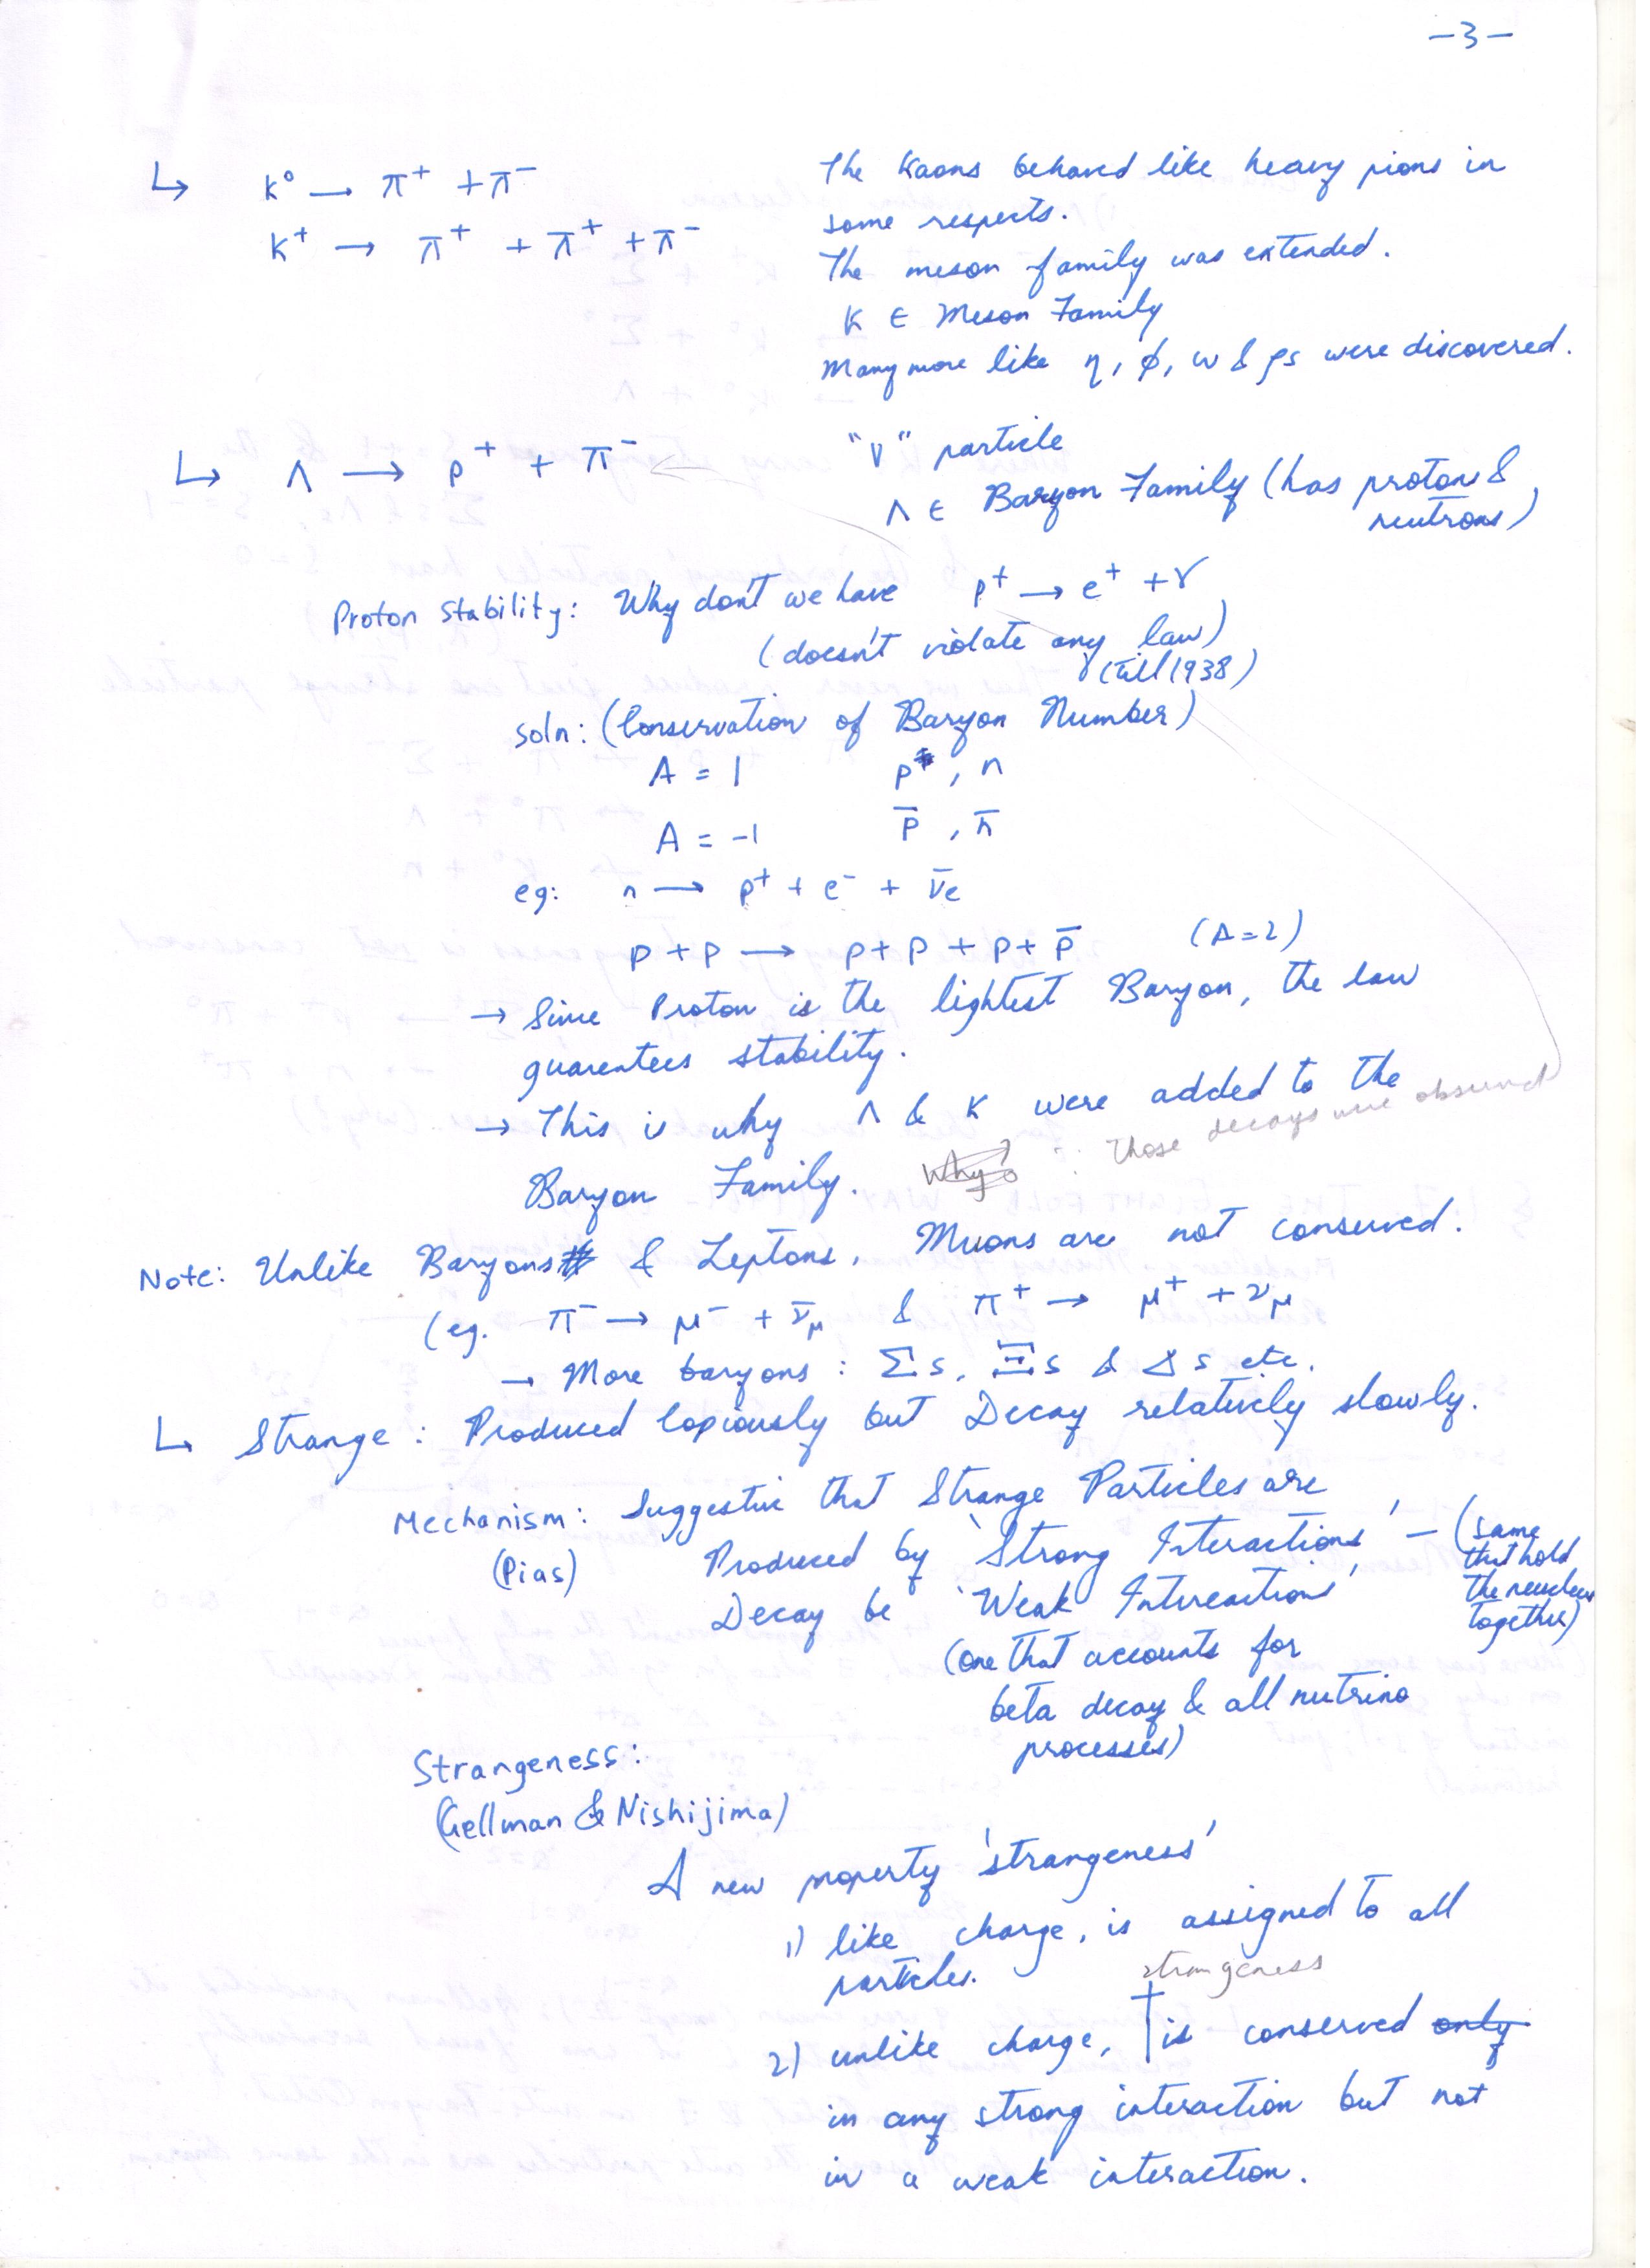 -3-
↳ K⁰ → π⁺ + π⁻
The Kaons behaved like heavy pions in
some respects.
K⁺ → π⁺ + π⁺ + π⁻
The meson family was extended.
K ∈ Meson Family
Many more like η, ϕ, ω & ρs were discovered.
↳ Λ → p⁺ + π⁻
"V" particle
Λ ∈ Baryon Family (has proton &
neutrons)
Proton Stability: Why don't we have p⁺ → e⁺ + γ
(doesn't violate any law)
(till 1938)
Soln: (Conservation of Baryon Number)
A = 1 p, n
A = -1 p̄, n̄
eg: n → p⁺ + e⁻ + ν̄e
p + p → p + p + p + p̄ (A=2)
→ Since Proton is the lightest Baryon, the law
guarentees stability.
→ This is why Λ & K were added to the
Baryon Family. Why? ∵ those decays were observed
Note: Unlike Baryons & Leptons, Muons are not conserved.
(eg. π⁻ → μ⁻ + ν̄μ & π⁺ → μ⁺ + νμ
→ More baryons : Σs, Ξs & Δs etc.
↳ Strange : Produced Copiously but Decay relatively slowly.
Mechanism: Suggestive that Strange Particles are
(Pias) Produced by 'Strong Interactions' – (same
that hold
the neucleus
together)
Decay be 'Weak Interactions'
(one that accounts for
beta decay & all nutrino
processes)
Strangeness:
(Gellman & Nishijima)
A new property 'strangeness'
1) like charge, is assigned to all
particles.
strangeness
2) unlike charge, is conserved only
in any strong interaction but not
in a weak interaction.